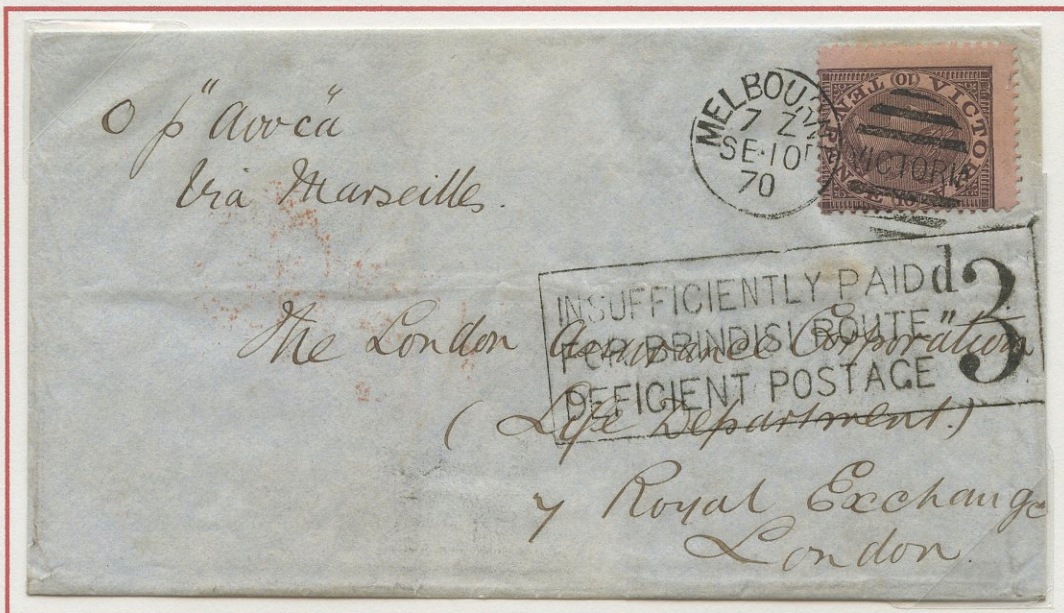 O p "Avoca"
Via Marseilles.
MELBOU
7 Z
SE·10
70
VICTORIA
TEN (10) VICTOR
INSUFFICIENTLY PAID
FOR BRINDISI ROUTE
DEFICIENT POSTAGE
d3
The London Assurance Corporation
(Life Department.)
7 Royal Exchange
London.